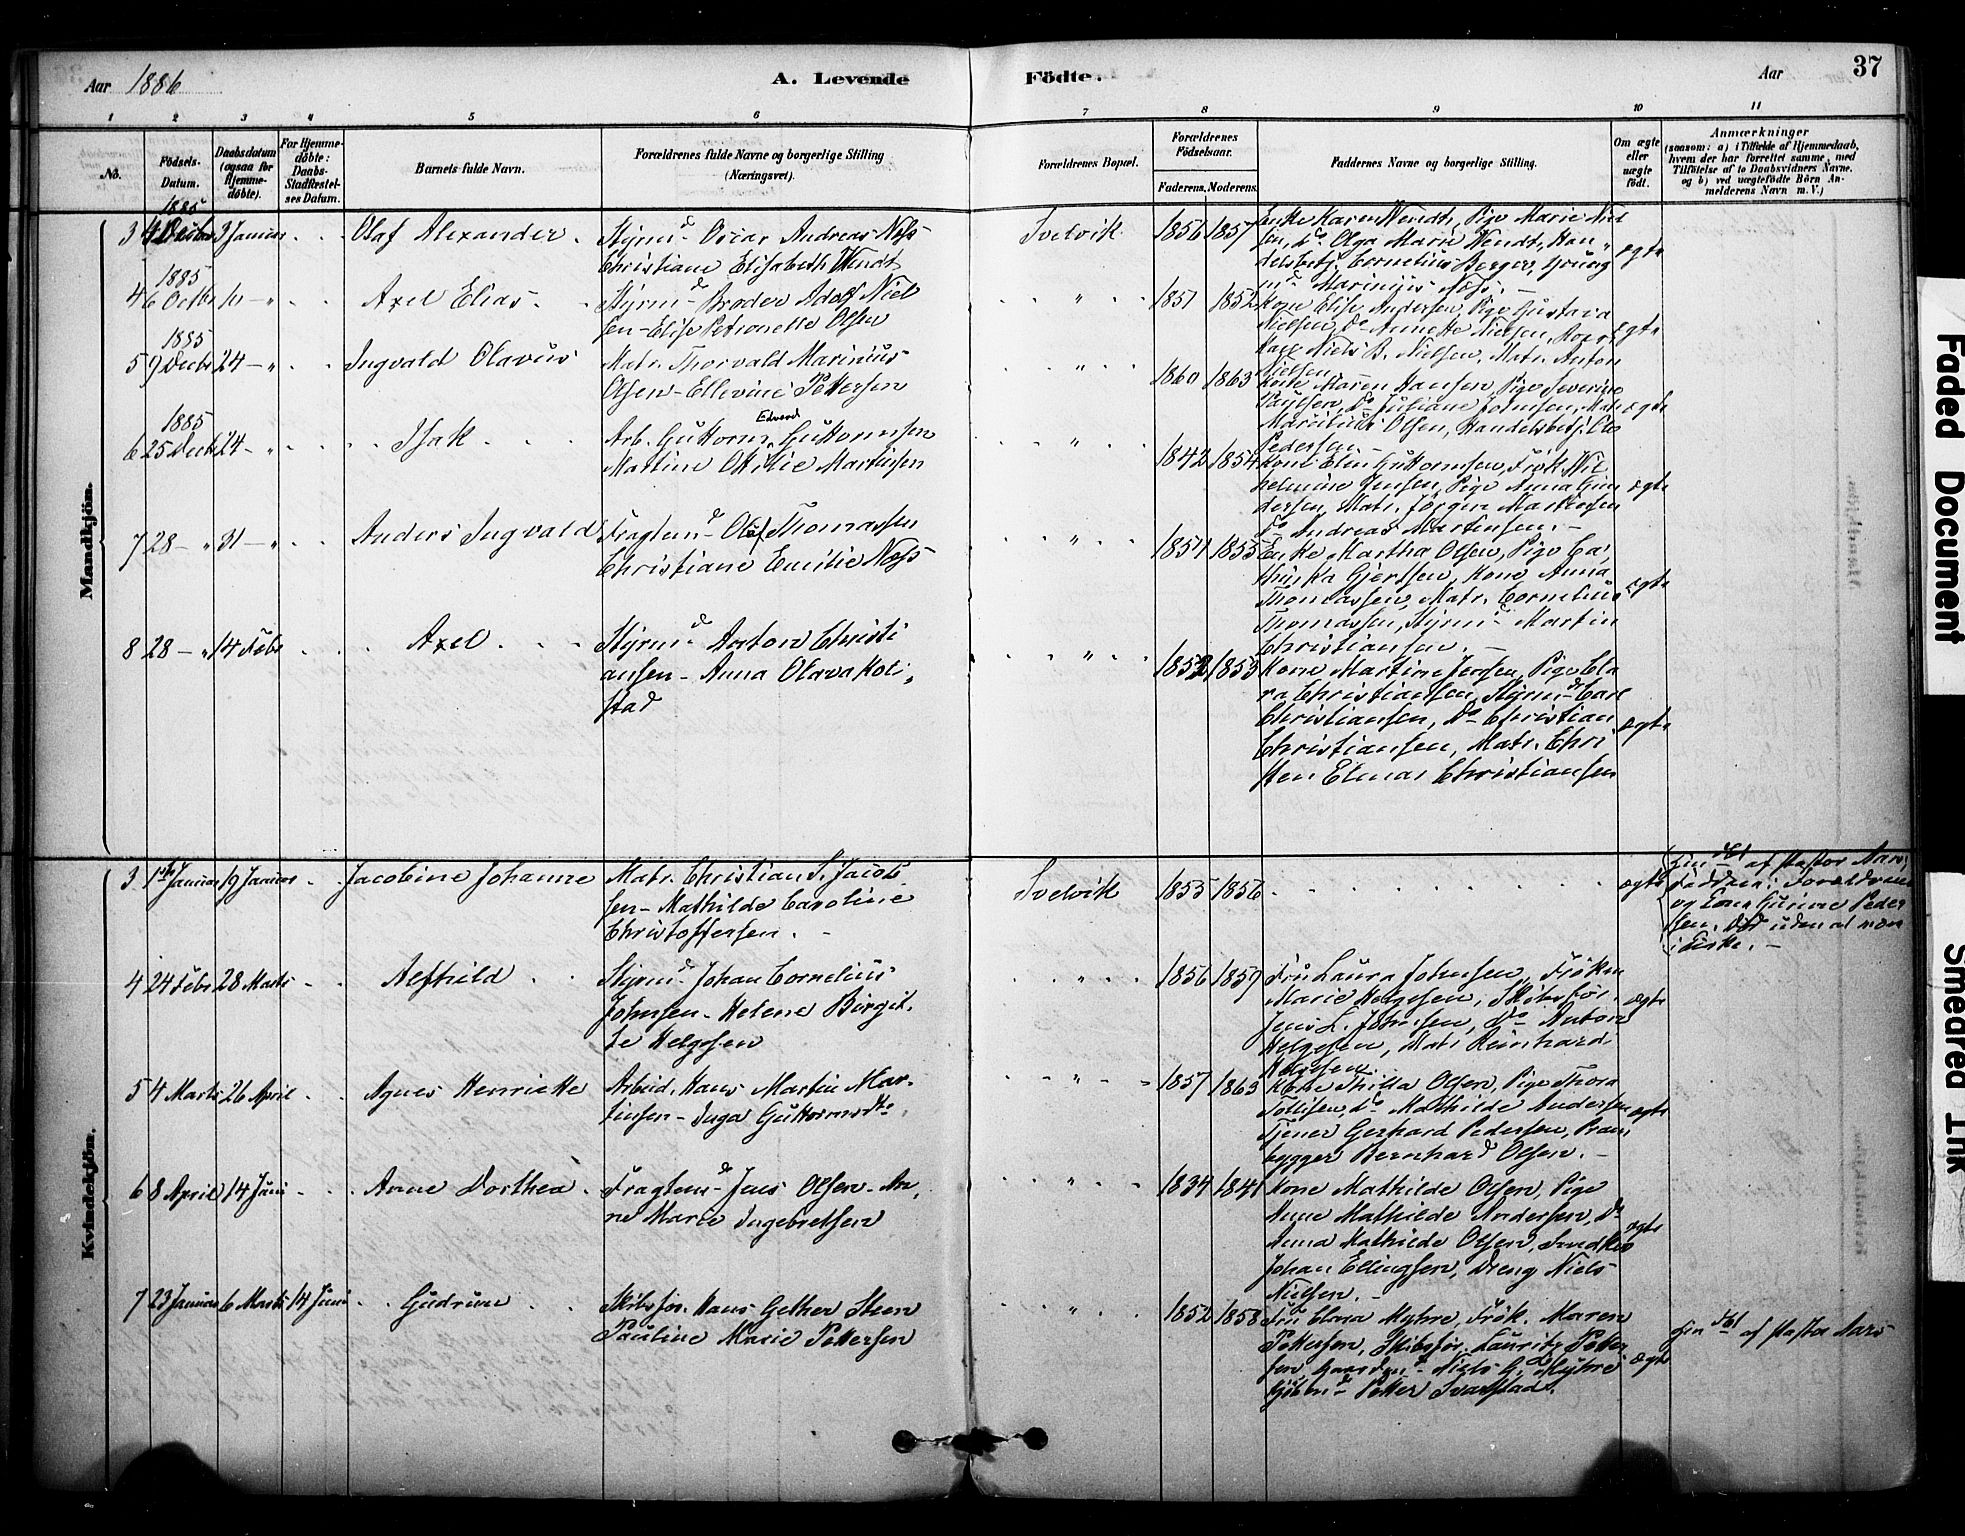 Aar 1886
A. Levende
Födte.
Aar
37
1 2 3 4 5 6 7 8 9 10 11
No.
Födsels-Datum.
Daabsdatum (ogsaa for Hjemmedöbte).
For Hjemmedöbte: Daabs-Stadfæstelses Datum.
Barnets fulde Navn.
Forældrenes fulde Navne og borgerlige Stilling (Næringsvei).
Forældrenes Bopæl.
Forældrenes Födselsaar.
Faderens. Moderens.
Faddernes Navne og borgerlige Stilling.
Om ægte eller uægte födt.
Anmærkninger
(saasom: a) i Tilfælde af Hjemmedaab, hvem der har forrettet samme, med Tilföielse af to Daabsvidners Navne, og b) ved uægtefödte Börn Anmelderens Navn m. V.)
Mandkjön.
1885
3 4 Decbr 3 Januar Olaf Alexander
Styrmd Oscar Andreas Næss
Christiane Elisabeth Wendt
Svelvik 1856 1857
Enke Karen Wendt, Pige Marie Niel
sen, do Olga Marie Wendt, Han
delsbetj. Cornelius Berger, Young
md Marinius Næss. ægte
1885
4 6 Octbr Axel Elias
Styrmd Broder Adolf Niel
sen - Elise Petronelle Olsen
" 1851 1852
Kone Elise Andersen, Pige Gustava
Nielsen, do Annette Nielsen,
Niels B. Nielsen, Matr. Anton
Nielsen ægte
1885
5 9 Decbr 24 - " Ingvald Olavus
Matr. Thorvald Marinius
Olsen - Ellevine Pettersen
" 1860 1863
Maren Hansen, Pige Severine
Paulsen, do Juliane Johnsen, Matr
Marcilius Olsen, Handelsbetj.
Pedersen ægte
1885
6 25 Decbr 24 - " Isak
Edvard
Arb. Guttorm Guttormsen
Martine Otilie Martinsen
" 1842 1854
Kone Elin Guttormsen, Frök. Wil
helmine Jensen, Pige Anna Gun
dersen, Matr. Jörgen Martinsen
do Andreas Martinsen. ægte
7 28 - " 31 - " Anders Ingvald
Fragtemd Oluf Thomassen
Christiane Emilie Næss
" 1851 1855
Enke Martha Olsen, Pige Ca
Gjertsen, Kone Anna
Thomassen, Matr. Cornelius
Thomassen, Styrmd Martin
Christiansen. ægte
8 28 - " 14 Febr Axel
Styrmd Anton Christi
ansen - Anna Olava Kol
stad
" 1852 1853
Kone Martine Jensen, Pige Cla
ra Christiansen, Styrmd Carl
Christiansen, Do Christian
Christiansen, Matr. Chri
sten Elmar Christiansen
ægte
Kvindekjön.
3 1ste Januar 19 Januar Jacobine Johanne
Matr. Christian S. Jacob
sen - Mathilde Caroline
Christoffersen.
Svelvik 1855 1856
ægte
af Pastor Aars
Faddere: Forældrene
og Gunine Peder
sen. Död uden at være
i Kirke.
4 24 Febr 28 Marts Alfhild
Styrmd Johan Cornelius
Johnsen - Helene Birgit
te Helgesen
" 1856 1859
Fru Laura Johnsen, Fröken
Marie Helgesen, Skibsför.
Jens L. Johnsen, Do Anton
Helgesen, Matr. Reinhard
Helgesen. ægte
5 4 Marts 26 April Agnes Henriette
Arbeid. Hans Martin Mar
tinsen - Inga Guttormsdtr
" 1857 1863
Kone Thilla Olsen, Pige Thora
Tollisen, do Mathilde Andersen
Tjener Gerhard Pedersen, Pram
bygger Bernhard Olsen. ægte
6 8 April 14 Juni Anne Dorthea
Fragtemd Jens Olsen - An
ne Marie Ingebretsen
" 1834 1841
Kone Mathilde Olsen, Pige
Anne Mathilde Andersen, Do
Anna Mathilde Olsen, Snedker
Johan Ellingsen, Dreng Niels
Nielsen. ægte
7 23 Januar 6 Marts 14 Juni Gudrun
Skibsför. Hans Gether Steen
Pauline Marie Pettersen
" 1852 1858
Fru Clara Myhre, Frök. Maren
Pettersen, Skibsför. Lauritz Petter
sen, Niels G. Myhre
Petter Svarstad. ægte
af Pastor Aars
Faded Document
Smeared Ink